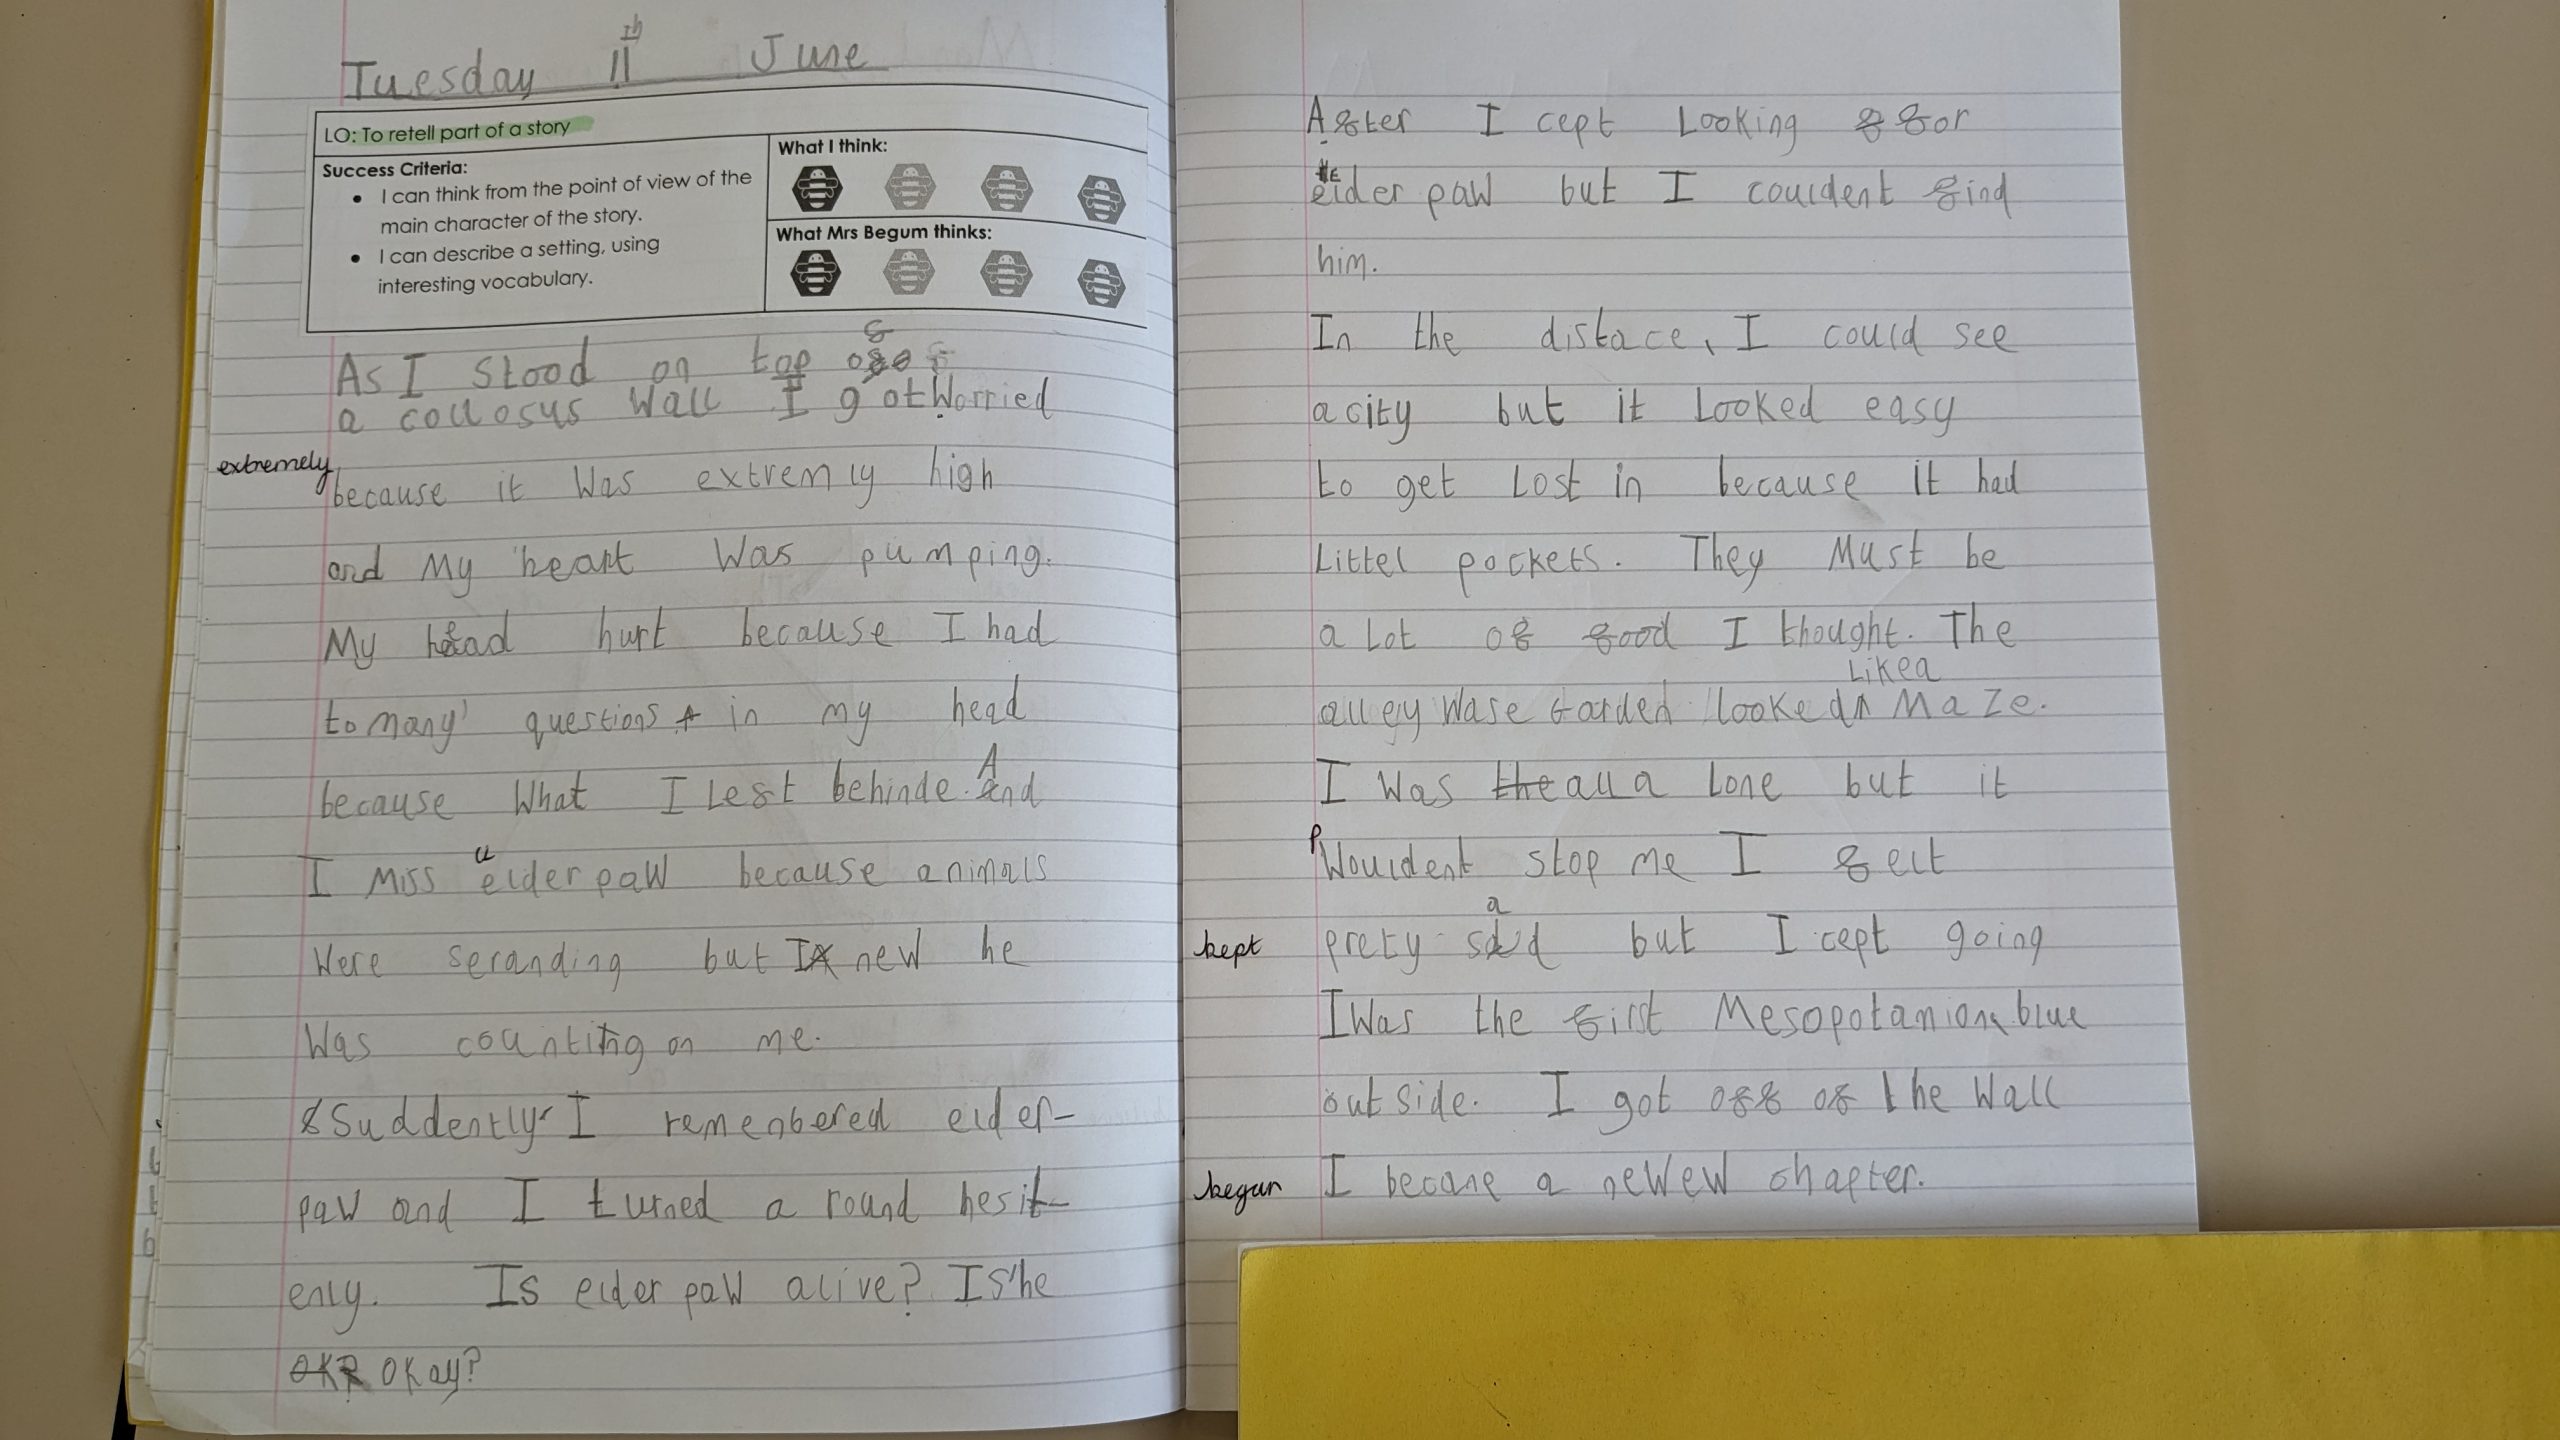 Tuesday 11th June
LO: To retell part of a story
Success Criteria:
• I can think from the point of view of the
main character of the story.
• I can describe a setting, using
interesting vocabulary.
What I think:
What Mrs Begum thinks:
As I stood on top of
a collosus wall I got worried
extremely
because it was extremly high
and My heart was pumping.
My head hurt because I had
to many questions in my head
because what I left behinde. And
I Miss elder paw because animals
were seranding but I new he
was counting on me.
Suddently I remenbered elder-
paw and I turned a round hesit-
enly. Is elder paw alive? Is he
okay?
After I cept looking for
elder paw but I couldent find
him.
In the distace, I could see
a city but it looked easy
to get lost in because it had
littel pockets. They Must be
a lot of food I thought. The
like a
alley wase Garden looked ^ Maze.
I was the all a lone but it
P
wouldent stop me I felt
kept
prety sad but I cept going
I was the first Mesopotanion blue
out side. I got off of the wall
began
I becane a newew chapter.